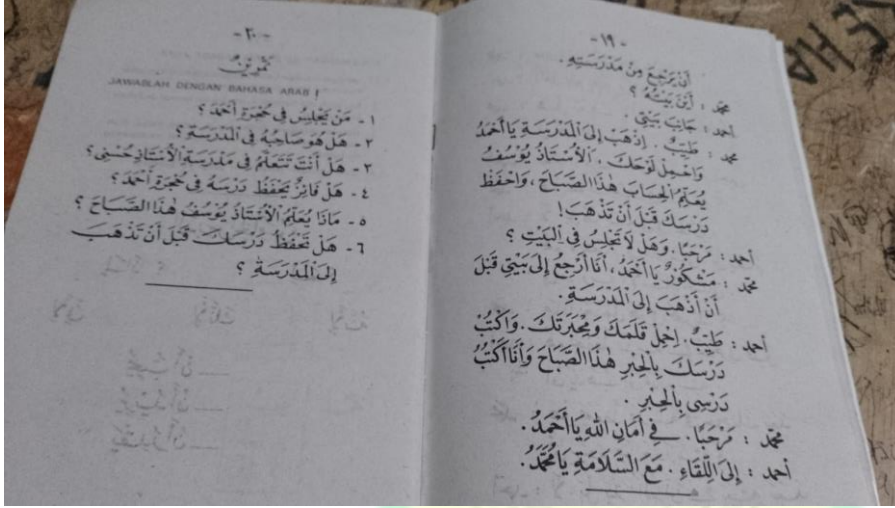 - ١٩ -
أَنْ يَرْجِعَ مِنْ مَدْرَسَتِهِ .
محمد : أَيْنَ بَيْتُهُ ؟
أحمد : جَانِبَ بَيْتِي .
محمد : طَيِّبٌ . اِذْهَبْ إِلَى الْمَدْرَسَةِ يَا أَحْمَدُ
وَاحْمِلْ لَوْحَكَ . اَلْأُسْتَاذُ يُوْسُفُ
يُعَلِّمُ الْحِسَابَ هٰذَا الصَّبَاحَ ، وَاحْفَظْ
دَرْسَكَ قَبْلَ أَنْ تَذْهَبَ !
أحمد : مَرْحَبًا . وَهَلْ لَا تَجْلِسُ فِي الْبَيْتِ ؟
محمد : مَشْكُوْرٌ يَا أَحْمَدُ ، أَنَا أَرْجِعُ إِلَى بَيْتِي قَبْلَ
أَنْ أَذْهَبَ إِلَى الْمَدْرَسَةِ .
أحمد : طَيِّبٌ . اِحْمِلْ قَلَمَكَ وَمِحْبَرَتَكَ . وَاكْتُبْ
دَرْسَكَ بِالْحِبْرِ هٰذَا الصَّبَاحَ وَأَنَا أَكْتُبُ
دَرْسِى بِالْحِبْرِ .
محمد : مَرْحَبًا . فِي أَمَانِ اللهِ يَا أَحْمَدُ .
أحمد : إِلَى اللِّقَاءِ . مَعَ السَّلَامَةِ يَا مُحَمَّدُ .
- ٢٠ -
تَمْرِيْنٌ
JAWABLAH DENGAN BAHASA ARAB !
١ - مَنْ يَجْلِسُ فِي حُجْرَةِ أَحْمَدَ ؟
٢ - هَلْ هُوَ صَاحِبُهُ فِي الْمَدْرَسَةِ ؟
٣ - هَلْ أَنْتَ تَتَعَلَّمُ فِي مَدْرَسَةِ الْأُسْتَاذِ حُسْنِي ؟
٤ - هَلْ فَائِزٌ يَحْفَظُ دَرْسَهُ فِي حُجْرَةِ أَحْمَدَ ؟
٥ - مَاذَا يُعَلِّمُ الْأُسْتَاذُ يُوْسُفُ هٰذَا الصَّبَاحَ ؟
٦ - هَلْ تَحْفَظُ دَرْسَكَ قَبْلَ أَنْ تَذْهَبَ
إِلَى الْمَدْرَسَةِ ؟